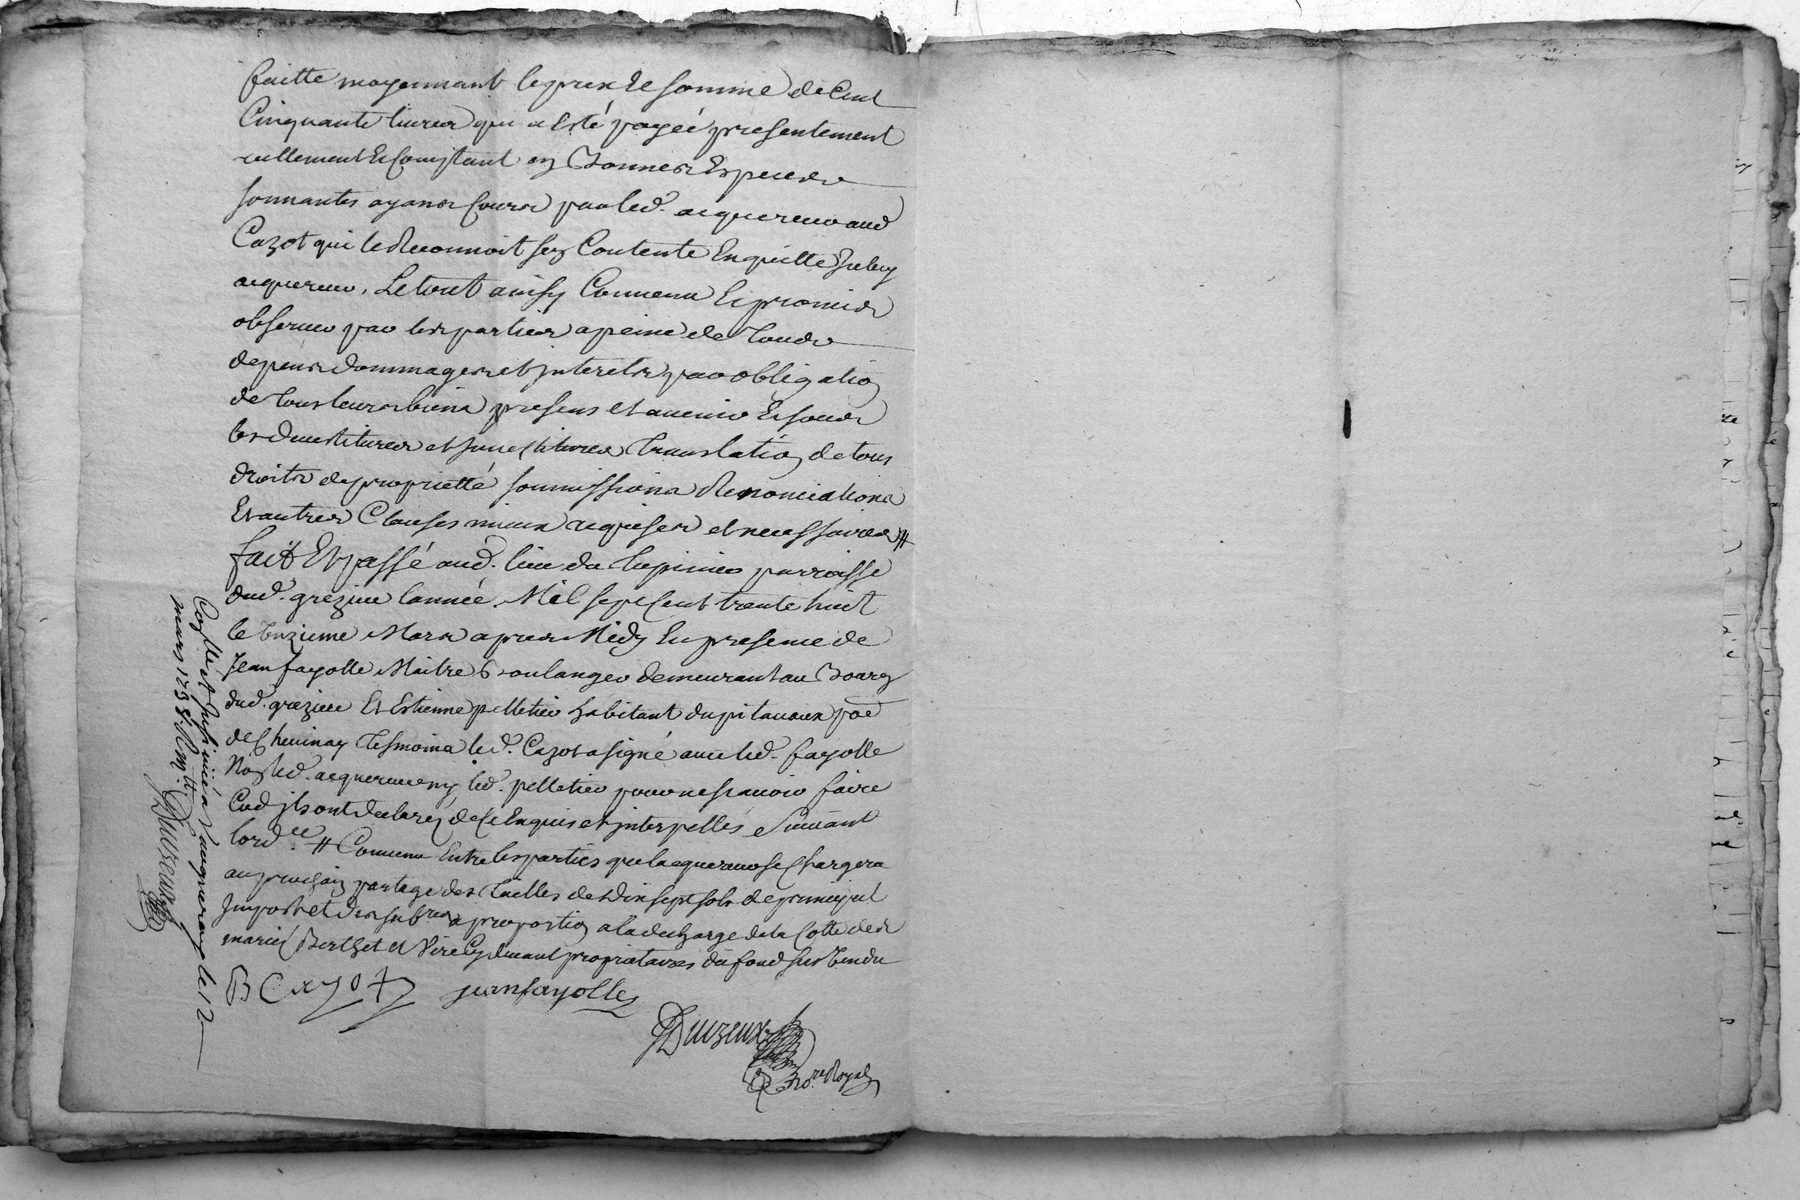 faitte moyennant le prix et somme de Cent
Cinquante livres qui a esté payéé presentement
reellement et Comptant en bonnes Especes
sonnantes ayans Cours par led. acquereur aud
Cazot qui le Reconnoit s'en Contente En quitte Iceluy
acquereur, Le tout ainsy Convenu Et promis
observer par les parties a peine de tous
depens dommages et interets par obligation
de tous leurs biens presens et avenir Et sous
les devestitures et investitures Translation de tous
droits de proprietté soumissions Renonciations
Et autres Clauses mieux requises et necessaires #
fait Et passé aud. lieu du Lupinier parroisse
dud. grezieu lannéé Mil sept Cent trente huit
le Unzieme Mars apres Midy En presence de
Jean fayolle Maitre Boulanger demeurant au Bourg
dud. grezieu Et Estienne pelletier habitant du pitavaux poe
de Chevinay Tesmoins led. Cazot a signé avec led. fayolle
Non led. acquereur ny led. pelletier pour ne sçavoir faire
Co'd ils ont declaréz de Ce Enquis et interpellés Suivant
lord.ce # Convenu Entre les parties que lacquereur se Chargera
au prochain partage des Tailles de dix sept sols de principal
Impost et des subres a proportion a la decharge de la Cotte des
mariés Berthet et Virely devant proprietaires du fond sus vendu
B Cazot jean fayolle
Duizeux
No.re Royal
Coᵉ́llé et Insinué a Vaugneray le 12
mars 1738. Rem.
Duizeux